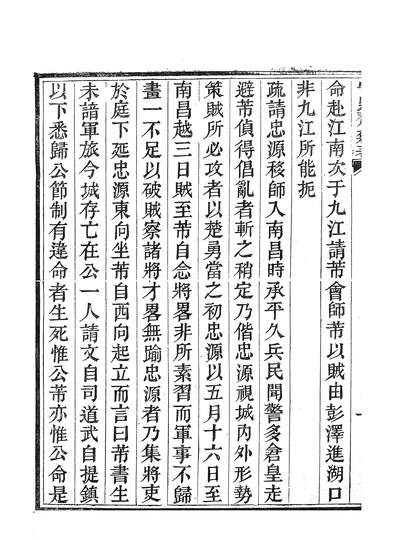 命赴江南次于九江請芾會師芾以賊由彭澤進湖口
非九江所能扼
疏請忠源移師入南昌時承平久兵民聞警多倉皇走
避芾偵得倡亂者斬之稍定乃偕忠源視城內外形勢
策賊所必攻者以楚勇當之初忠源以五月十六日至
南昌越三日賊至芾自念將畧非所素習而軍事不歸
畫一不足以破賊察諸將才畧無踰忠源者乃集將吏
於庭下延忠源東向坐芾自西向起立而言曰芾書生
未諳軍旅今城存亡在公一人請文自司道武自提鎮
以下悉歸公節制有違命者生死惟公芾亦惟公命是